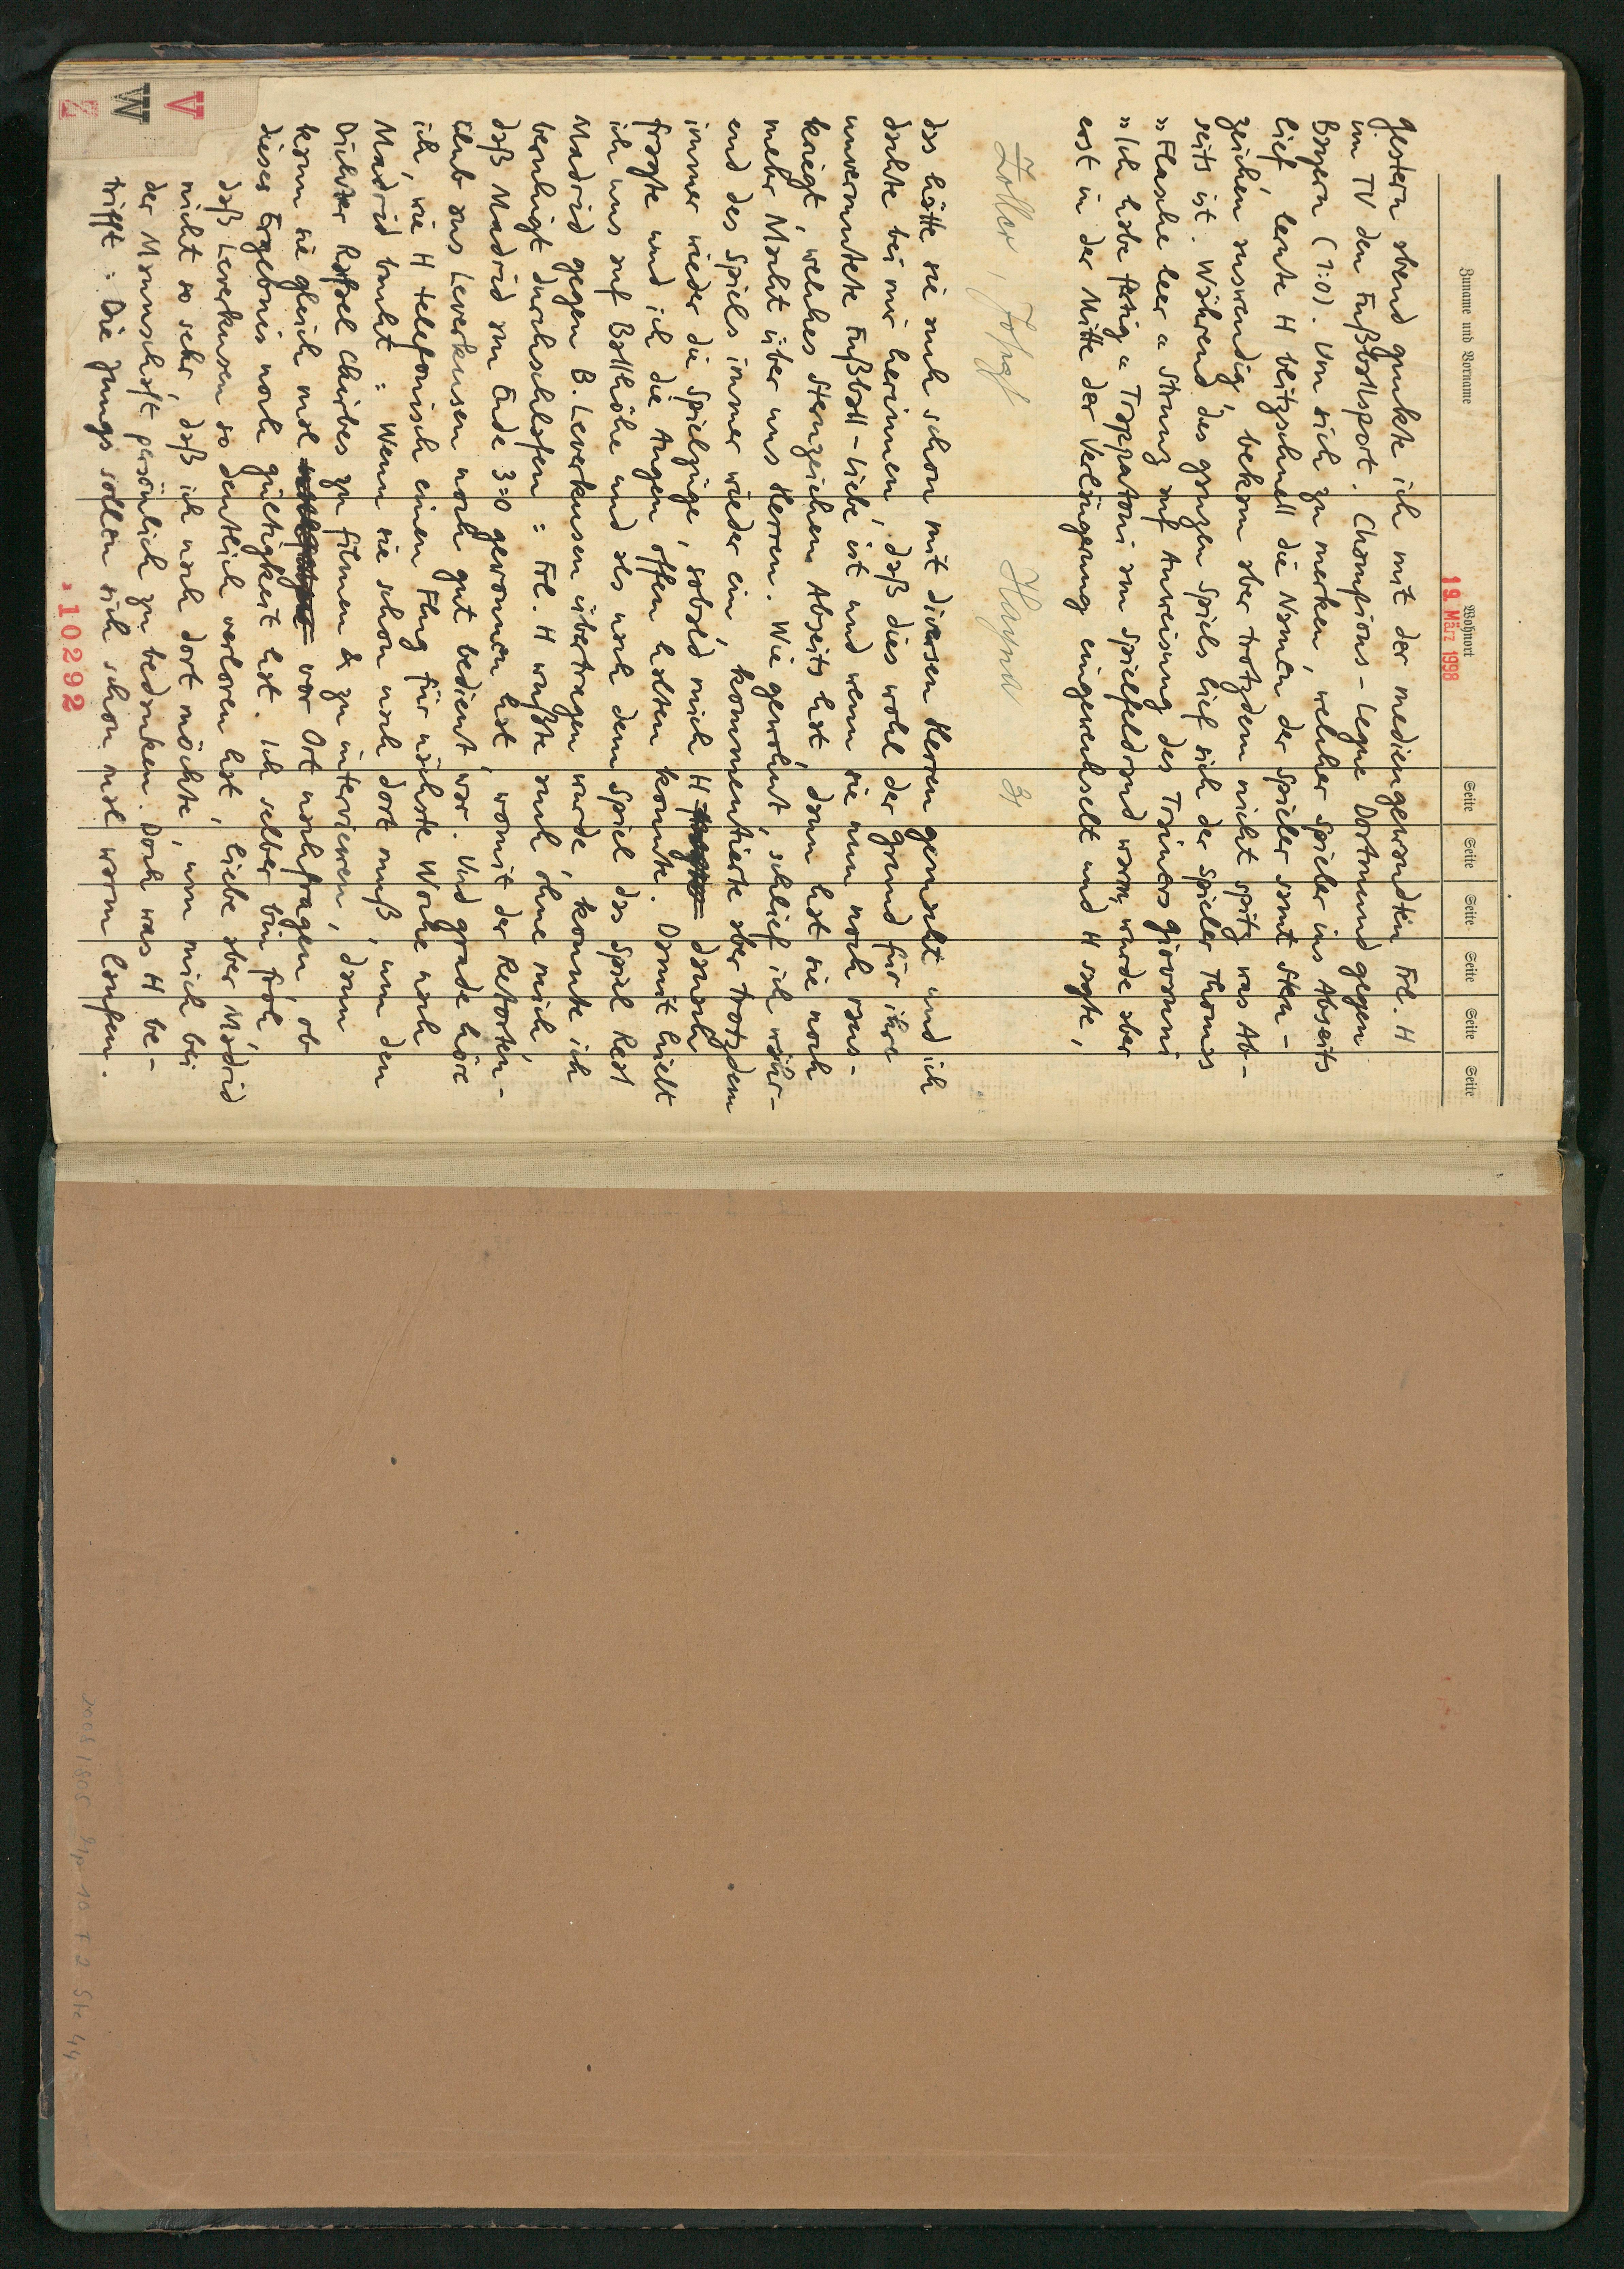 Zuname und Vorname Wohnort Seite Seite Seite Seite Seite Seite
19. März 1998
Gestern abend guckte ich mit der mediengewandten Frl. H
im TV den Fußballsport. Champions-Legue Dortmund gegen
Bayern (1:0). Um sich zu merken, welcher Spieler ins Abseits
lief, lernte H blitzschnell die Namen der Spieler samt Stern-
zeichen auswendig, bekam aber trotzdem nicht spitz was Ab-
seits ist. Während des ganzen Spiels lief sich der Spieler Thomas
"Flasche leer" Strunz auf Anweisung des Trainers Giovanni
"Ich habe fertig" Trappatoni am Spielfeldrand warm, wurde aber
erst in der Mitte der Verlängerung eingewechselt und H sagte,
Zoller, Josef Hagnau 31
das hätte sie auch schon mit diversen Herren gemacht und ich
dachte bei mir herinnen, daß dies wohl der Grund für ihre
unvermutete Fußball-Liebe ist und wenn sie nun noch raus-
kriegt, welches Sternzeichen Abseits hat, dann hat sie noch
mehr Macht über uns Herren. Wie gewohnt, schlief ich währ-
end des Spiels immer wieder ein, kommentierte aber trotzdem
immer wieder die Spielzüge, sobald mich H danach
fragte und ich die Augen offen halten konnte. Damit hielt
ich uns auf Ballhöhe und als nach dem Spiel das Spiel Real
Madrid gegen B. Leverkusen übertragen wurde, konnte ich
beruhigt durchschlafen: Frl. H wußte auch ohne mich,
daß Madrid am Ende 3:0 gewonnen hat, womit der Retorten-
club aus Leverkusen noch gut bedient war. Und grade höre
ich, wie H telefonisch einen Flug für nächste Woche nach
Madrid bucht: Wenn sie schon nach dort muß, um den
Dichter Rafael Chirbes zu filmen & zu interviewen, dann
kann sie gleich mal vor Ort nachfragen, ob
dieses Ergebnis noch Gültigkeit hat. Ich selber bin froh,
daß Leverkusen so deutlich verloren hat, liebe aber Madrid
nicht so sehr, daß ich nach dort möchte, um mich bei
der Mannschaft persönlich zu bedanken. Doch was H be-
trifft: Die Jungs sollen sich schon mal warm laufen.
V
W
Z
*10292